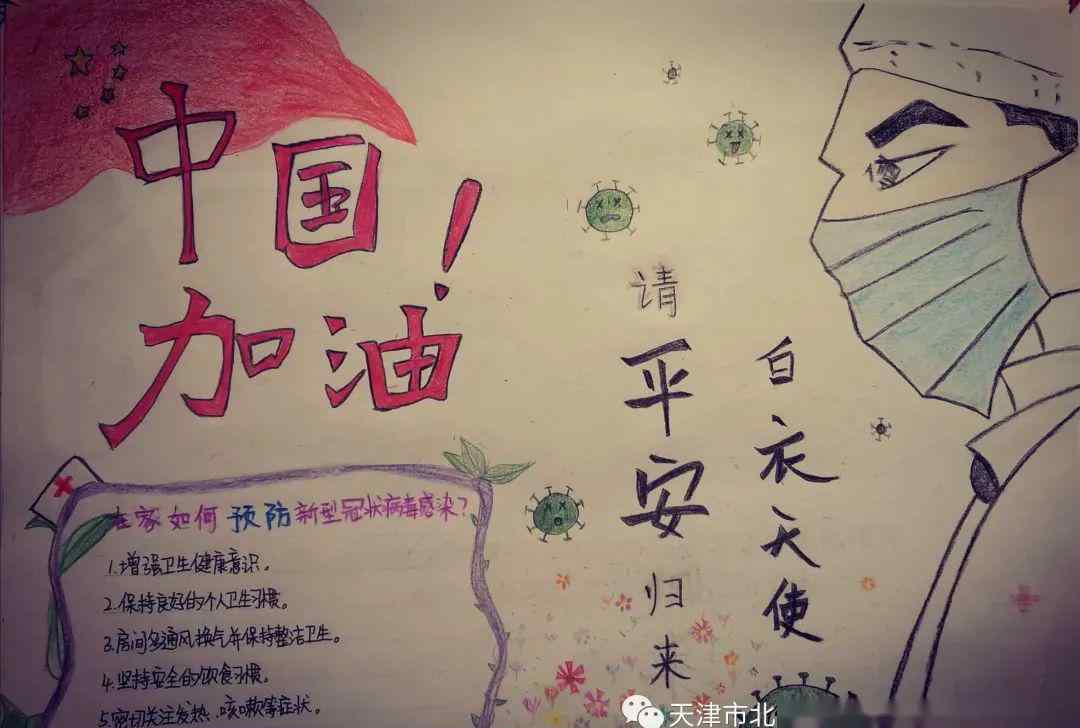 中国
加油！
在家如何预防新型冠状病毒感染？
1.增强卫生健康意识。
2.保持良好的个人卫生习惯。
3.房间多通风换气并保持整洁卫生。
4.坚持安全的饮食习惯。
5.密切关注发热、咳嗽等症状。
白衣天使
请平安归来
天津市北